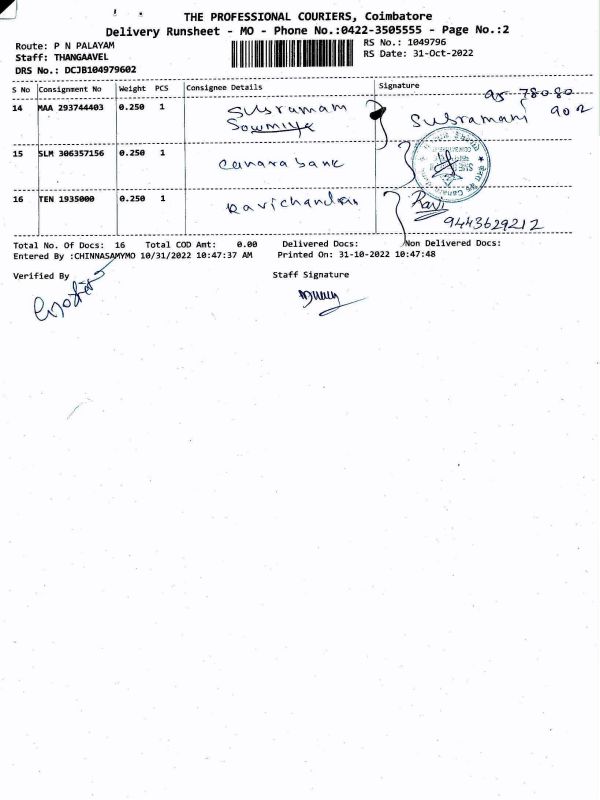 THE PROFESSIONAL COURIERS, Coimbatore
Delivery Runsheet - MO - Phone No.:0422-3505555 - Page No.:2
Route: P N PALAYAM
Staff: THANGAAVEL
DRS No.: DCJB104979602
RS No.: 1049796
RS Date: 31-Oct-2022
S No Consignment No Weight PCS Consignee Details Signature
95-78080
14 MAA 293744403 0.250 1 Subramam Subramani 902
Sowmiya
15 SLM 306357156 0.250 1 Canara bank
16 TEN 1935000 0.250 1 Ravichandran Ravi
9443629212
Total No. Of Docs: 16 Total COD Amt: 0.00 Delivered Docs: Non Delivered Docs:
Entered By :CHINNASAMYMO 10/31/2022 10:47:37 AM Printed On: 31-10-2022 10:47:48
Verified By Staff Signature